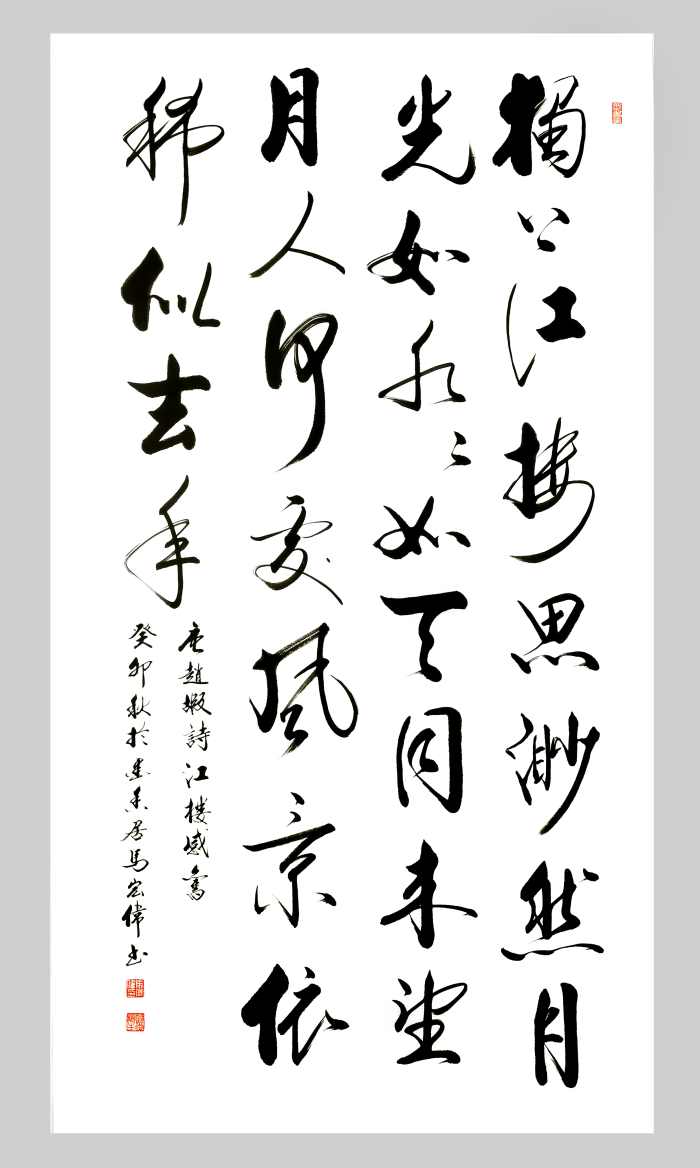 獨上江楼思渺然月
光如水々如天同来望
月人何處風景依
稀似去年
唐趙嘏詩江楼感舊
癸卯秋於香居馬宏偉书